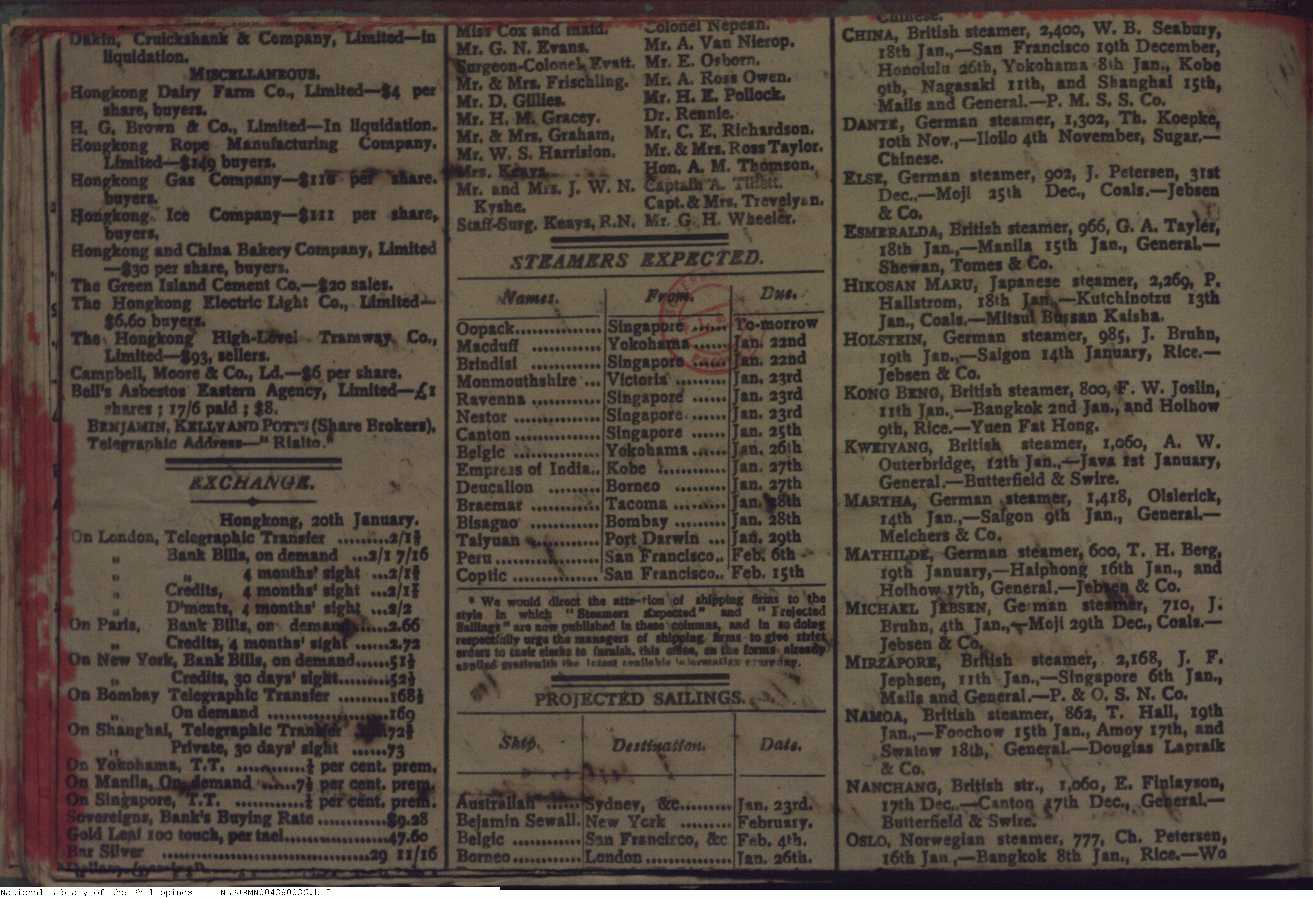 Dakin, Cruickshank & Company, Limited—in
liquidation.
MISCELLANEOUS.
Hongkong Dairy Farm Co., Limited—$4 per
share, buyers.
H. G. Brown & Co., Limited—In liquidation.
Hongkong Rope Manufacturing Company,
Limited—$149 buyers.
Hongkong Gas Company—$110 per share.
buyers.
Hongkong Ice Company—$111 per share,
buyers,
Hongkong and China Bakery Company, Limited
—$30 per share, buyers.
The Green Island Cement Co.—$20 sales.
The Hongkong Electric Light Co., Limited—
$6.60 buyers.
The Hongkong High-Level Tramway Co.,
Limited—$93, sellers.
Campbell, Moore & Co., Ld.—$6 per share.
Bell's Asbestos Eastern Agency, Limited—£1
shares ; 17/6 paid ; $8.
BENJAMIN, KELLY AND POTTS (Share Brokers).
Telegraphic Address—"Rialto."
EXCHANGE.
Hongkong, 20th January.
On London, Telegraphic Transfer ..........
„ Bank Bills, on demand ...2/1 7/16
„ „ 4 months' sight ...
„ Credits, 4 months' sight ...
„ D'ments, 4 months' sight ...2/2
On Paris, Bank Bills, on demand ......2.66
„ Credits, 4 months' sight ......2.72
On New York, Bank Bills, on demand......51½
„ Credits, 30 days' sight.........52½
On Bombay Telegraphic Transfer .........168½
„ On demand ..................169
On Shanghai, Telegraphic Transfer
„ Private, 30 days' sight ......73
On Yokohama, T.T. ............½ per cent. prem.
On Manila, On demand ......7½ per cent. prem.
On Singapore, T.T. ............½ per cent. prem.
Sovereigns, Bank's Buying Rate ............$9.28
Gold Leaf 100 touch, per tael...............47.60
Bar Silver ....................................29 11/16
Miss Cox and maid.
Mr. G. N. Evans.
Surgeon-Colonel Evatt.
Mr. & Mrs. Frischling.
Mr. D. Gillies.
Mr. H. M. Gracey.
Mr. & Mrs. Graham.
Mr. W. S. Harrision.
Mrs. Keays.
Mr. and Mrs. J. W. N.
Kyshe.
Staff-Surg. Keays, R.N.
Colonel Nepean.
Mr. A. Van Nierop.
Mr. E. Osborn.
Mr. A. Ross Owen.
Mr. H. E. Pollock.
Dr. Rennie.
Mr. C. E. Richardson.
Mr. & Mrs. Ross Taylor.
Hon. A. M. Thomson.
Captain A. Tillett.
Capt. & Mrs. Trevelyan.
Mr. G. H. Wheeler.
STEAMERS EXPECTED.
Names. From. Due.
Oopack............... Singapore ...... To-morrow
Macduff ............ Yokohama ...... Jan. 22nd
Brindisi ............ Singapore ...... Jan. 22nd
Monmouthshire ... Victoria ......... Jan. 23rd
Ravenna ............ Singapore ...... Jan. 23rd
Nestor ............... Singapore ...... Jan. 23rd
Canton ............... Singapore ...... Jan. 25th
Belgic ............... Yokohama ...... Jan. 26th
Empress of India.. Kobe ............ Jan. 27th
Deucalion ......... Borneo ......... Jan. 27th
Braemar ............ Tacoma ......... Jan. 28th
Bisagno ............ Bombay ......... Jan. 28th
Taiyuan ............ Port Darwin ... Jan. 29th
Peru .................. San Francisco.. Feb. 6th
Coptic ............... San Francisco.. Feb. 15th
* We would direct the attention of shipping firms to the
style in which "Steamers Expected" and "Projected
Sailings" are now published in these columns, and in so doing
respectfully urge the managers of shipping firms to give strict
orders to their clerks to furnish, this office, on the forms already
applied with the latest available information everyday.
PROJECTED SAILINGS.
Ship. Destination. Date.
Australian ...... Sydney, &c......... Jan. 23rd.
Bejamin Sewall. New York ......... February.
Belgic ............ San Francirco, &c Feb. 4th.
Borneo............ London ............ Jan. 26th.
Chinese.
CHINA, British steamer, 2,400, W. B. Seabury,
18th Jan.,—San Francisco 19th December,
Honolulu 26th, Yokohama 8th Jan., Kobe
9th, Nagasaki 11th, and Shanghai 15th,
Mails and General.—P. M. S. S. Co.
DANTE, German steamer, 1,302, Th. Koepke,
10th Nov.,—Iloilo 4th November, Sugar.—
Chinese.
ELSE, German steamer, 902, J. Petersen, 31st
Dec.,—Moji 25th Dec., Coals.—Jebsen
& Co.
ESMERALDA, British steamer, 966, G. A. Tayler,
18th Jan.,—Manila 15th Jan., General.—
Shewan, Tomes & Co.
HIKOSAN MARU, Japanese steamer, 2,269, P.
Hallstrom, 18th Jan.,—Kutchinotzu 13th
Jan., Coals.—Mitsui Bussan Kaisha.
HOLSTEIN, German steamer, 985, J. Bruhn,
19th Jan.,—Saigon 14th January, Rice.—
Jebsen & Co.
KONG BENG, British steamer, 800, F. W. Joslin,
11th Jan.,—Bangkok 2nd Jan., and Hoihow
9th, Rice.—Yuen Fat Hong.
KWEIYANG, British steamer, 1,060, A. W.
Outerbridge, 12th Jan.,—Java 1st January,
General.—Butterfield & Swire.
MARTHA, German steamer, 1,418, Olslerick,
14th Jan.,—Saigon 9th Jan., General.—
Melchers & Co.
MATHILDE, German steamer, 600, T. H. Berg,
19th January,—Haiphong 16th Jan., and
Hoihow 17th, General.—Jebsen & Co.
MICHAEL JEBSEN, German steamer, 710, J.
Bruhn, 4th Jan.,—Moji 29th Dec., Coals.—
Jebsen & Co.
MIRZAPORE, British steamer, 2,168, J. F.
Jephsen, 11th Jan.,—Singapore 6th Jan.,
Mails and General.—P. & O. S. N. Co.
NAMOA, British steamer, 862, T. Hall, 19th
Jan.,—Foochow 15th Jan., Amoy 17th, and
Swatow 18th, General.—Douglas Lapraik
& Co.
NANCHANG, British str., 1,060, E. Finlayson,
17th Dec.,—Canton 17th Dec., General.—
Butterfield & Swire.
OSLO, Norwegian steamer, 777, Ch. Petersen,
16th Jan.,—Bangkok 8th Jan., Rice.—Wo
National Library of the Philippines